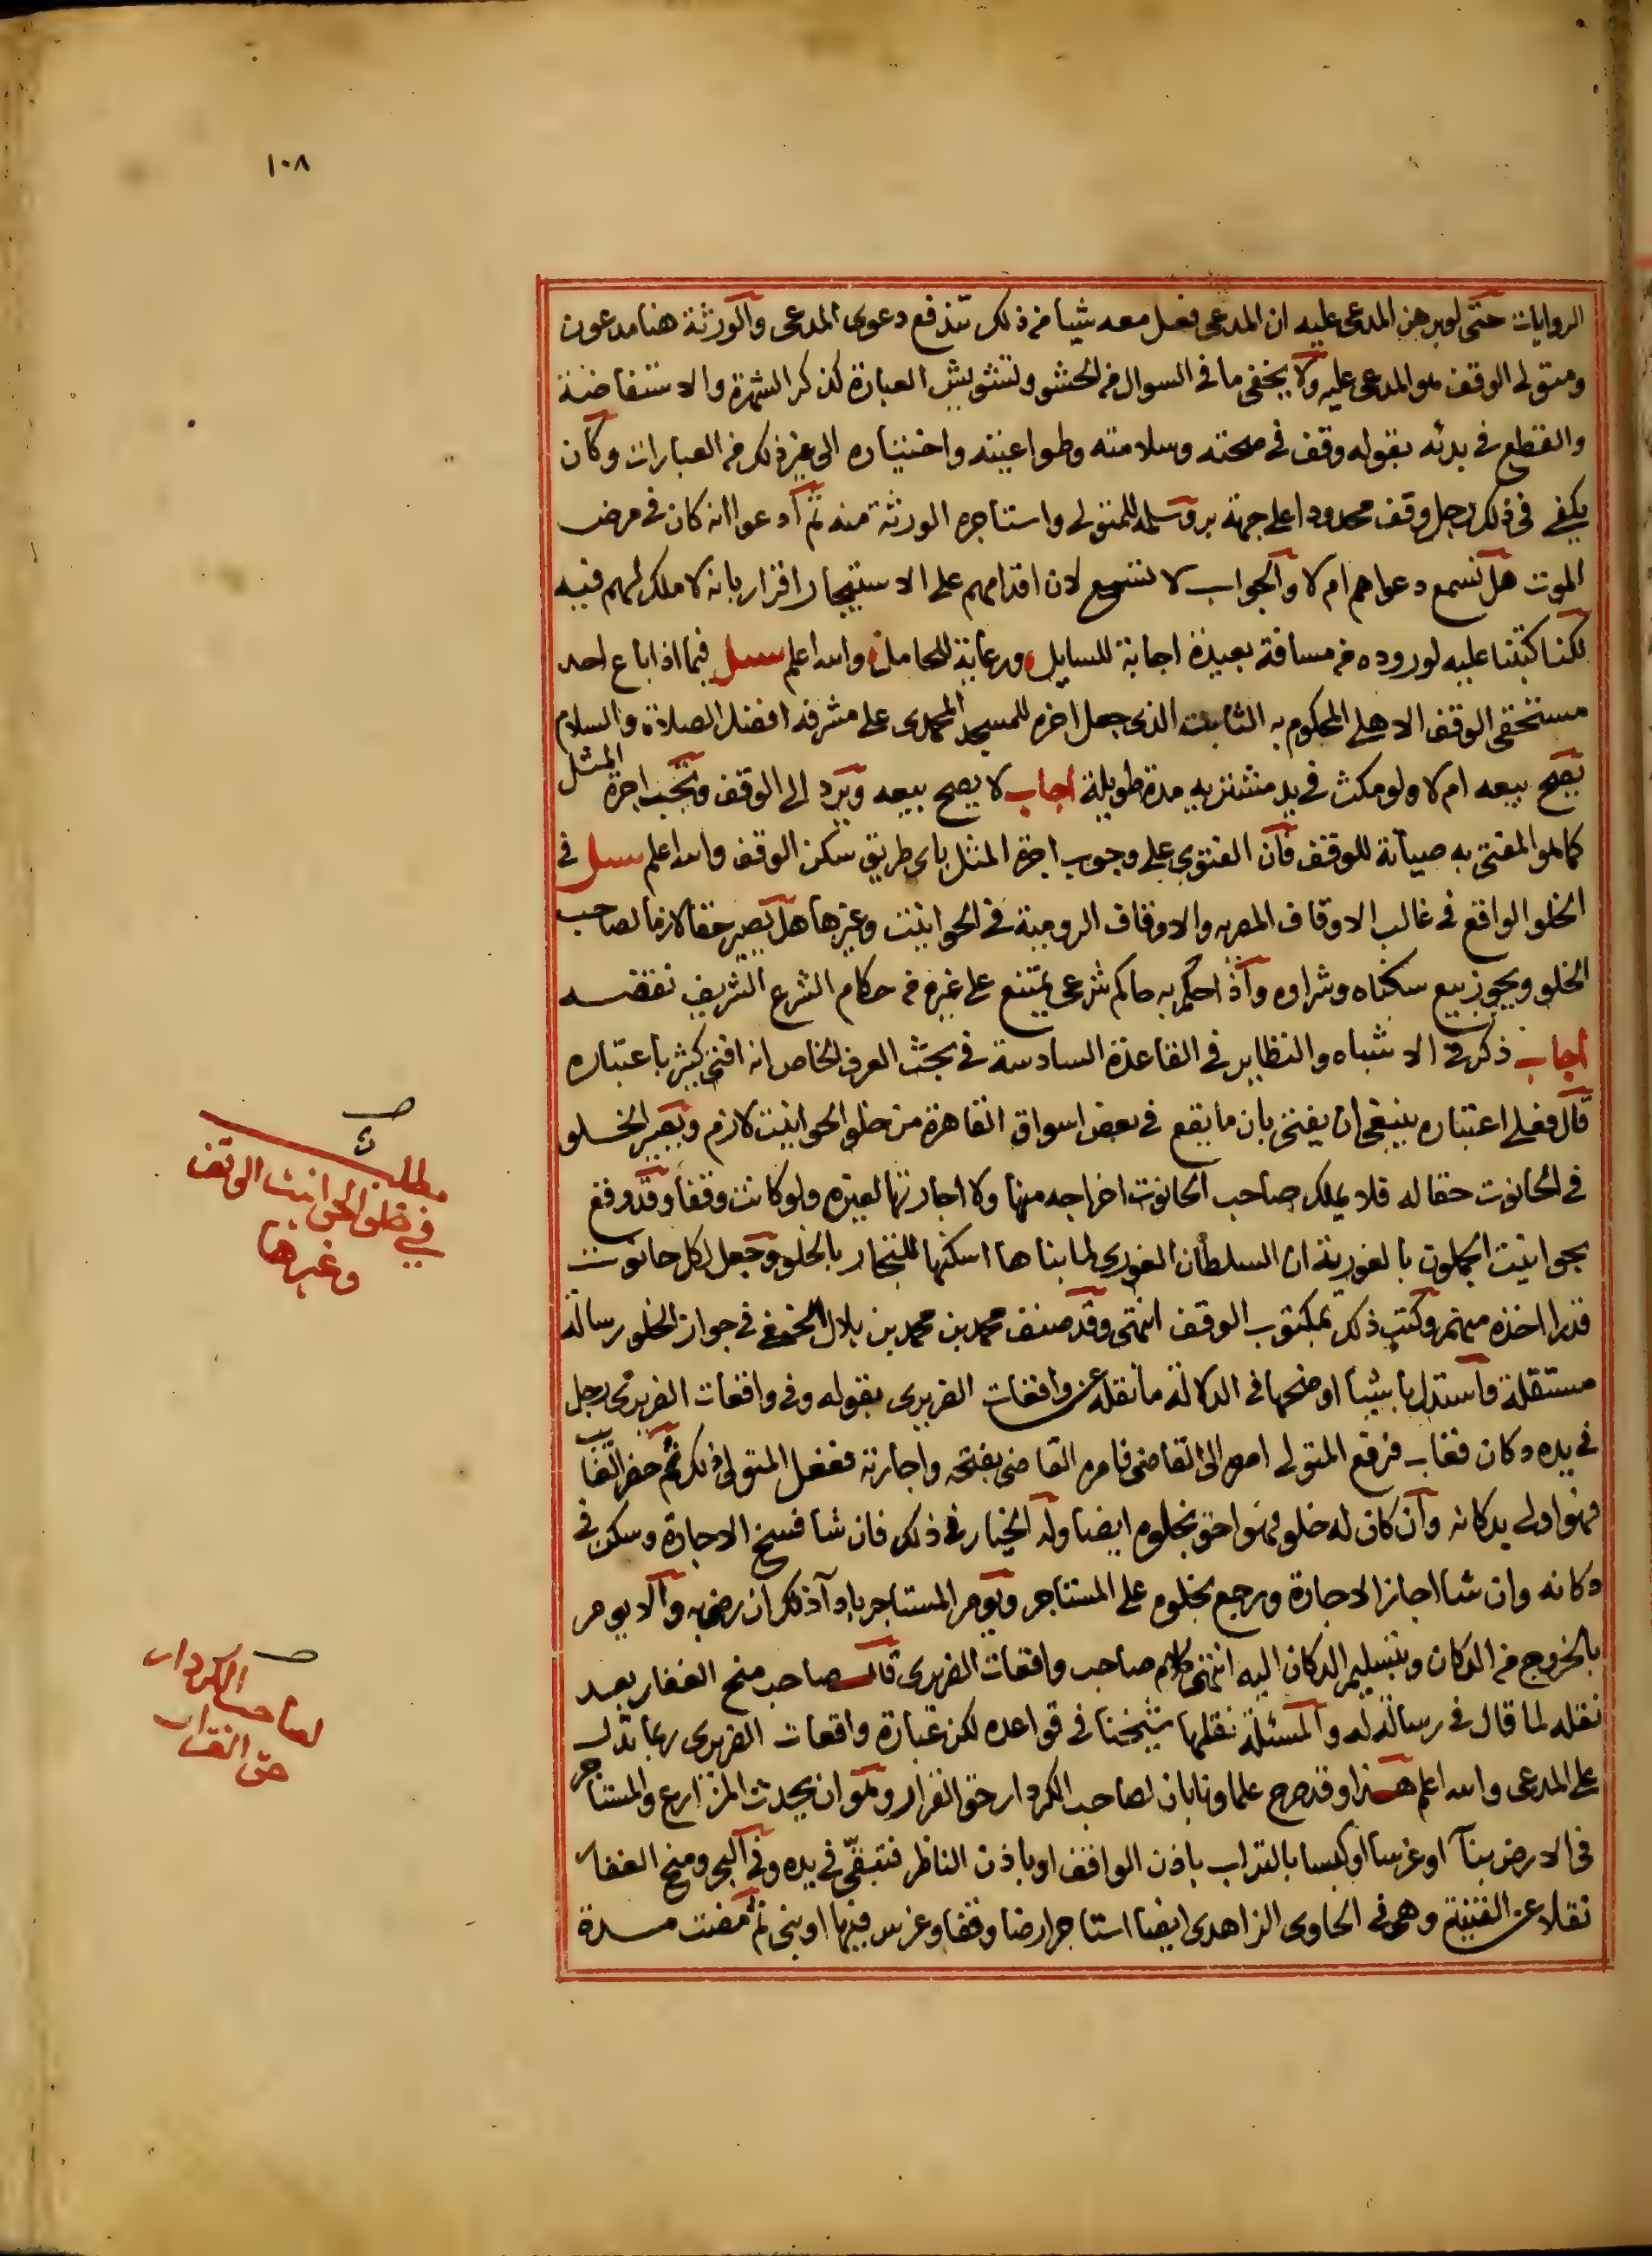 ١٠٨
الروايات حتى لو برهن المدعى عليه ان المدعى فعل معه شيا من ذلك تندفع دعوى المدعى والورثة هنا مدعون
ومتولى الوقف هو المدعى عليه ولا يخفى ما فى السوال من الحشو وتشويش العبارة كذكر الشهرة والاستفاضة
والقطع فى بدئه بقوله وقف فى صحته وسلامته وطواعيته واختياره الى غير ذلك من العبارات وكان
يكفى فى ذلك رجل وقف محدودا على جهة بر وسلمه للمتولى واستاجره الورثة منه ثم ادعوا انه كان فى مرض
الموت هل تسمع دعواهم ام لا والجواب لا تسمع لان اقدامهم على الاستيجار اقرار بانه لا ملك لهم فيه
لكنا كتبنا عليه لوروده من مسافة بعيدة اجابة للسايل ورعاية للحامل والله اعلم سئل فيما اذا باع احد
مستحقى الوقف الاهلى المحكوم به الثابت الذى جعل اخره للمسجد المحمدى على مشرفه افضل الصلاة والسلام
يصح بيعه ام لا ولو مكث فى يد مشتريه مدة طويلة اجاب لا يصح بيعه ويرد الى الوقف وتجب اجرة المثل
كما هو المفتى به صيانة للوقف فان الفتوى على وجوب اجرة المثل باى طريق سكن الوقف والله اعلم سئل فى
الخلو الواقع فى غالب الاوقاف المصريه والاوقاف الرومية فى الحوانيت وغيرها هل يصير حقا لازما لصاحب
الخلو ويجوز بيع سكناه وشراوه واذا حكم به حاكم شرعى يمتنع على غيره من حكام الشرع الشريف نقضه
اجاب ذكر فى الاشباه والنظاير فى القاعدة السادسة فى بحث العرف الخاص انه افتى كثير باعتباره
قال فعلى اعتباره ينبغى ان يفتى بان ما يقع فى بعض اسواق القاهرة من خلو الحوانيت لازم ويصير الخلو
فى الحانوت حقا له فلا يملك صاحب الحانوت اخراجه منها ولا اجارتها لغيره ولو كانت وقفا وقد وقع
بحوانيت الجملون بالغورية ان السلطان الغورى لما بناها اسكنها للتجار بالخلو وجعل لكل حانوت
قدرا اخذه منهم وكتب ذلك بمكتوب الوقف انتهى وقد صنف محمد بن محمد بن بلال الحنفى فى جواز الخلو رسالة
مستقلة واستدل باشيا اوضحها فى الدلالة ما نقله عن واقعات الضريرى بقوله وفى واقعات الضريرى رجل
فى يده دكان فغاب فرفع المتولى امره الى القاضى فامره القاضى بفتحه واجارته ففعل المتولى ذلك ثم حضر الغايب
فهو اولى بدكانه وان كان له خلو فهو احق بخلوه ايضا وله الخيار فى ذلك فان شا فسخ الاجارة وسكن فى
دكانه وان شا اجاز الاجارة ورجع بخلوه على المستاجر ويومر المستاجر باداء ذلك ان رضى به والا يومر
بالخروج من الدكان وبتسليم الدكان اليه انتهى كلام صاحب واقعات الضريرى قال صاحب منح الغفار بعد
نقله لما قال فى رسالة له والمسئلة نقلها شيخنا فى قواعده لكن عبارة واقعات الضريرى ربما تدل
على المدعى والله اعلم هذا وقد صرح علماونا بان لصاحب الكردار حق القرار وهو ان يحدث المزارع والمستاجر
فى الارض بناء او غرسا او كبسا بالتراب باذن الواقف او باذن الناظر فتبقى فى يده وفى البحر ومنح الغفار
نقلا عن القنية وهى فى الحاوى الزاهدى ايضا استاجر ارضا وقفا وغرس فيها او بنى ثم مضت مدة
مطلب
فى خلو الحوانيت الوقف
وغيرها
لصاحب الكردار
حق القرار